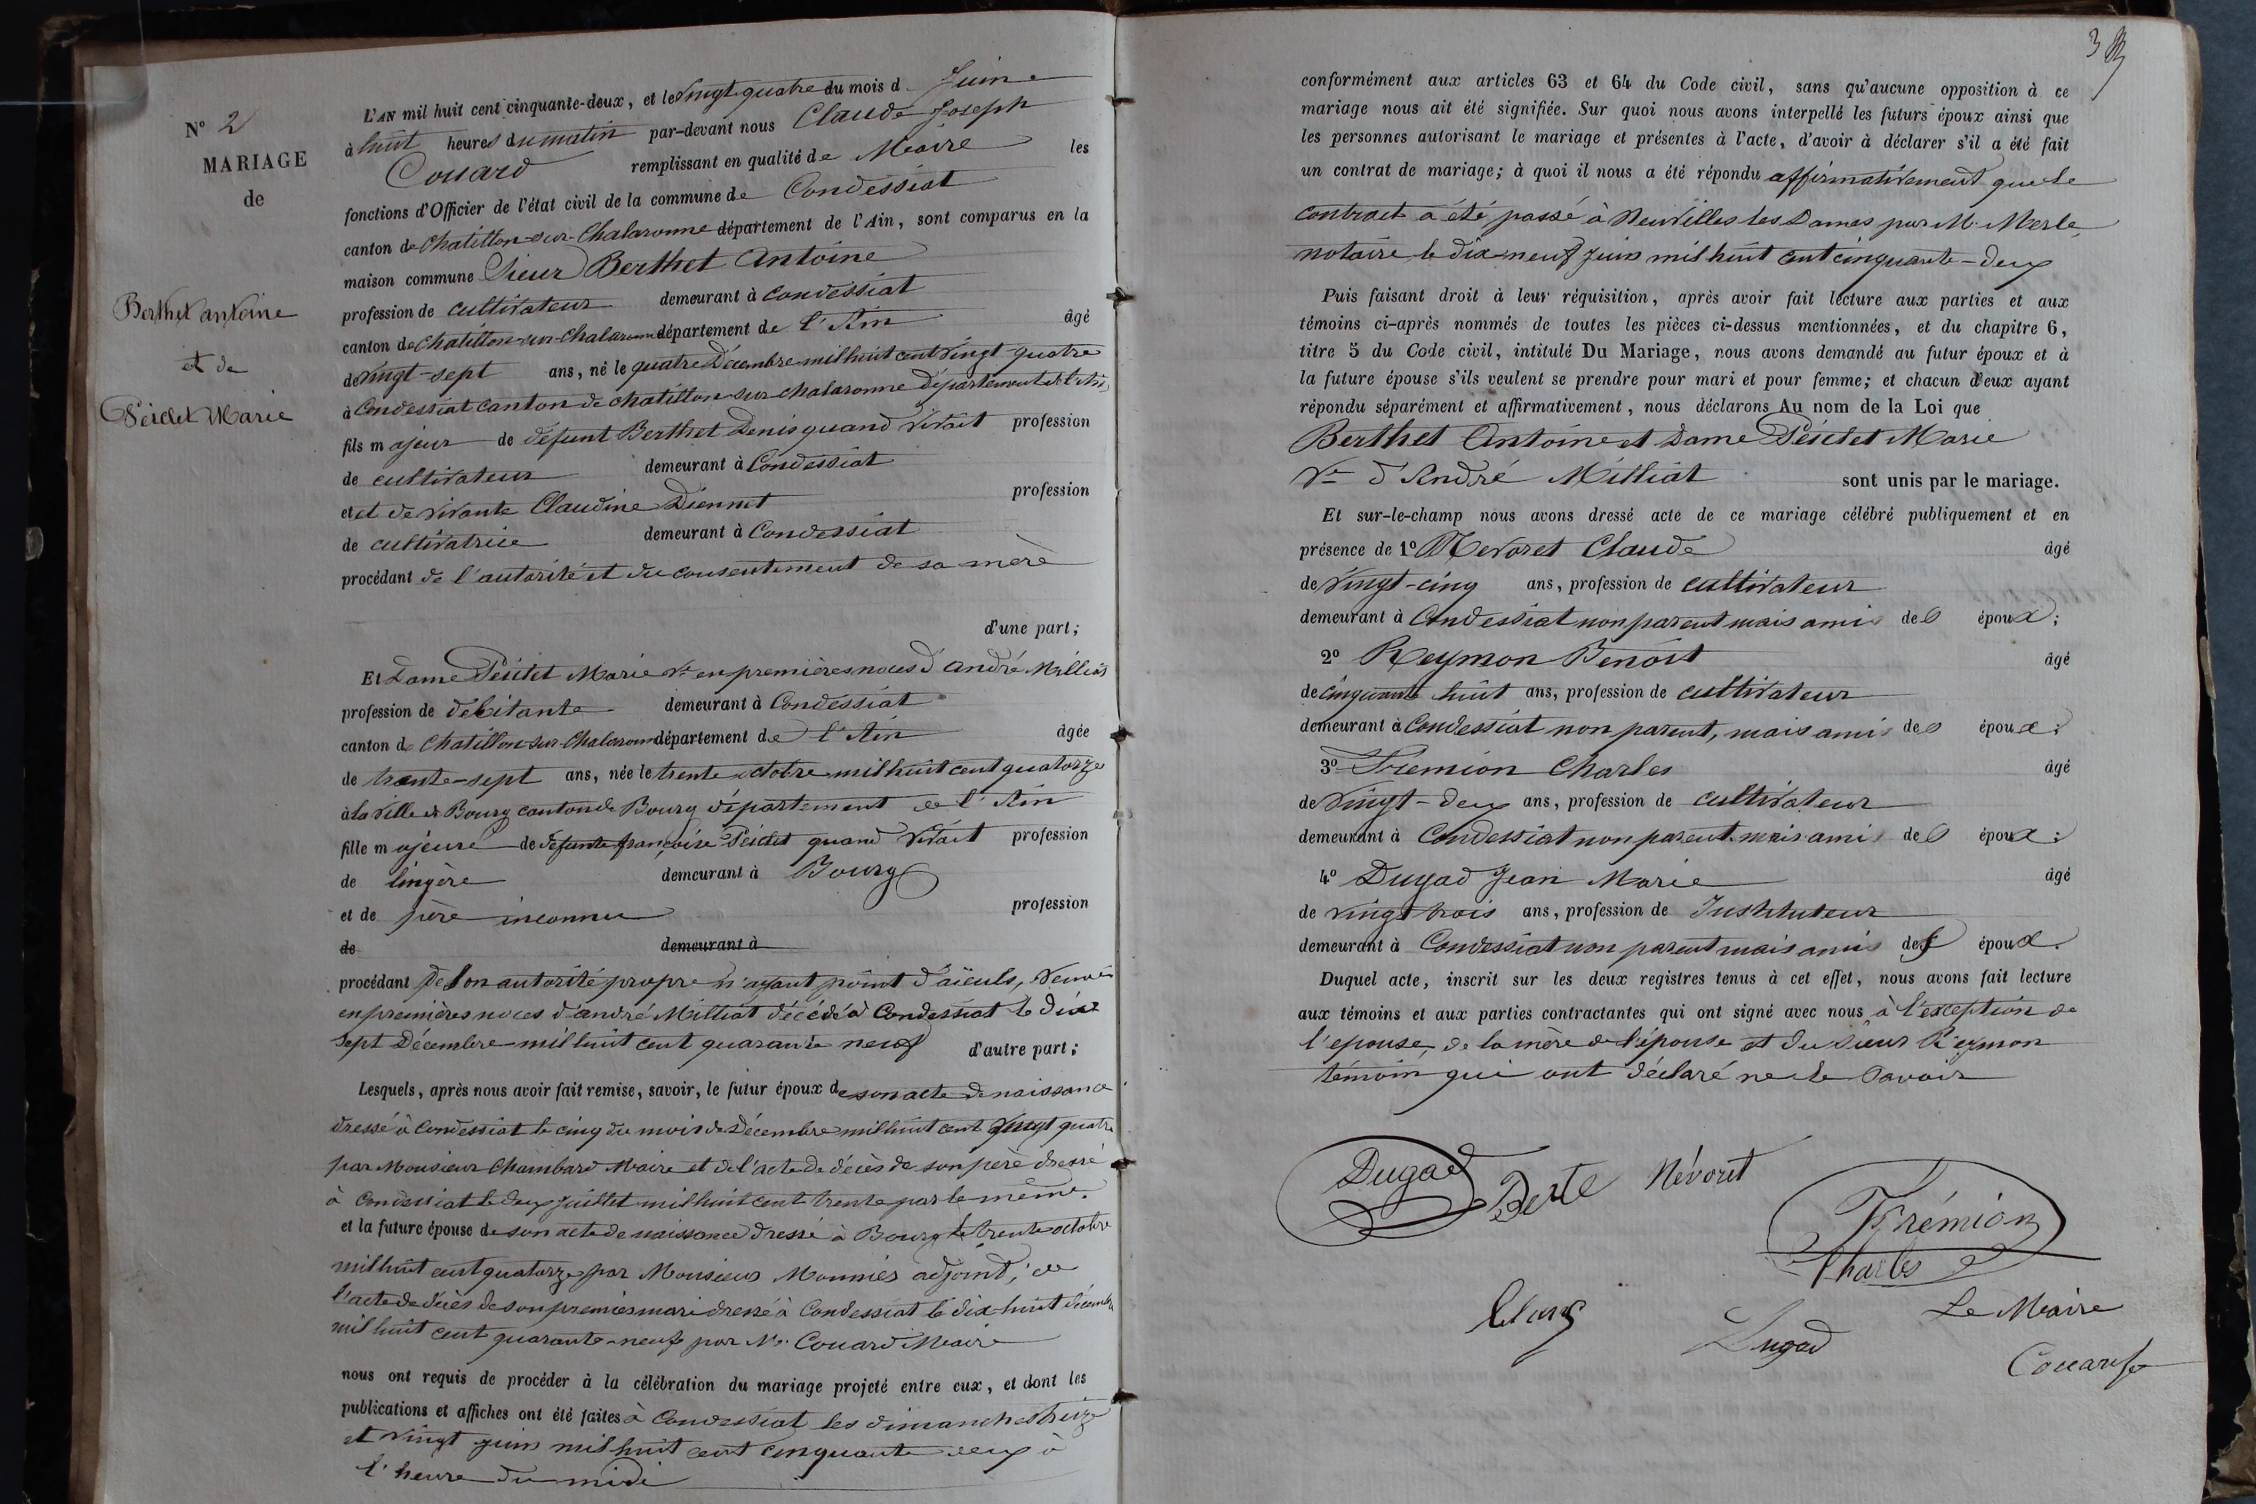 N° 2
MARIAGE
de
Berthet antoine
et de
Péidet Marie
L'AN mil huit cent cinquante-deux, et le Vingt quatre du mois d Juin
à huit heures du matin par-devant nous Claude Joseph
Couard remplissant en qualité de Maire les
fonctions d'Officier de l'état civil de la commune de Condessiat
canton de Chatillon-sur-Chalaronne département de l'Ain, sont comparus en la
maison commune Sieur Berthet Antoine
profession de cultivateur demeurant à Condessiat
canton de Chatillon-sur-Chalaronne département de l'Ain âgé
de Vingt-sept ans, né le quatre Décembre mil huit cent vingt-quatre
à Condessiat canton de Chatillon-sur-chalaronne département de l'Ain
fils majeur de défunt Berthet Denis quand vivait profession
de cultivateur demeurant à Condessiat
et et de vivante Claudine profession
de cultivatrice demeurant à Condessiat
procédant de l'autorité et du consentement de sa mère
d'une part;
Et Dame Péidet Marie Ve en premières noces d'André Milliat
profession de débitante demeurant à Condessiat
canton de Chatillon-sur-Chalaronne département de l'Ain âgée
de trente-sept ans, née le trente octobre mil huit cent quatorze
à la ville de Bourg canton de Bourg département de l'Ain
fille majeure de défunte françoise Péidet quand vivait profession
de lingère demeurant à Bourg
et de père inconnu profession
de demeurant à
procédant de son autorité propre n'ayant point d'aïeuls, Veuve
en premières noces d'andré Milliat décédé à Condessiat le dix
sept Décembre mil huit cent quarante neuf d'autre part;
Lesquels, après nous avoir fait remise, savoir, le futur époux de son acte de naissance
dressé à Condessiat le cinq du mois de Décembre mil huit cent vingt quatre
par Monsieur Chambard Maire et de l'acte de décès de son père dressé
à Condessiat le deux juillet mil huit cent trente par le même.
et la future épouse de son acte de naissance dressé à Bourg le trente octobre
mil huit cent quatorze par Monsieur Monnier adjoint; de
l'acte de décès de son premier mari dressé à Condessiat le dix-huit décembre
mil huit cent quarante-neuf par Mr Couard Maire
nous ont requis de procéder à la célébration du mariage projeté entre eux, et dont les
publications et affiches ont été faites à Condessiat les dimanches treize
et vingt juin mil huit cent cinquante deux à
l'heure du midi
3
conformément aux articles 63 et 64 du Code civil, sans qu'aucune opposition à ce
mariage nous ait été signifiée. Sur quoi nous avons interpellé les futurs époux ainsi que
les personnes autorisant le mariage et présentes à l'acte, d'avoir à déclarer s'il a été fait
un contrat de mariage; à quoi il nous a été répondu affirmativement que le
contrat a été passé à Neuvilles les Dames par M. Merle
notaire le dix-neuf juin mil huit cent cinquante-deux
Puis faisant droit à leur réquisition, après avoir fait lecture aux parties et aux
témoins ci-après nommés de toutes les pièces ci-dessus mentionnées, et du chapitre 6,
titre 5 du Code civil, intitulé Du Mariage, nous avons demandé au futur époux et à
la future épouse s'ils veulent se prendre pour mari et pour femme; et chacun d'eux ayant
répondu séparément et affirmativement, nous déclarons Au nom de la Loi que
Berthet Antoine et Dame Péidet Marie
Ve d'André Milliat sont unis par le mariage.
Et sur-le-champ nous avons dressé acte de ce mariage célébré publiquement et en
présence de 1° Nevoret Claude âgé
de vingt-cinq ans, profession de cultivateur
demeurant à Condessiat non parent mais ami des époux;
2° Reymon Benoît âgé
de cinquante huit ans, profession de cultivateur
demeurant à Condessiat non parent, mais ami des époux;
3° Fremion Charles âgé
de vingt-deux ans, profession de cultivateur
demeurant à Condessiat non parent mais ami des époux;
4° Dugad Jean Marie âgé
de vingt trois ans, profession de Instituteur
demeurant à Condessiat non parent mais ami des époux.
Duquel acte, inscrit sur les deux registres tenus à cet effet, nous avons fait lecture
aux témoins et aux parties contractantes qui ont signé avec nous à l'exception de
l'épouse, de la mère de l'épouse et du sieur Reymon
témoin qui ont déclaré ne le savoir
Dugad Berte Névoret
Frémion
Charles
Dugad
Le Maire
Couard